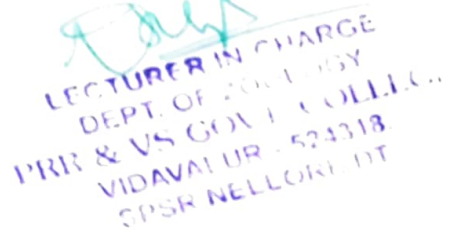 LECTURER IN CHARGE
DEPT. OF ZOOLOGY
PRR & VS GOVT COLLEGE
VIDAVALUR - 524318
SPSR NELLORE DT